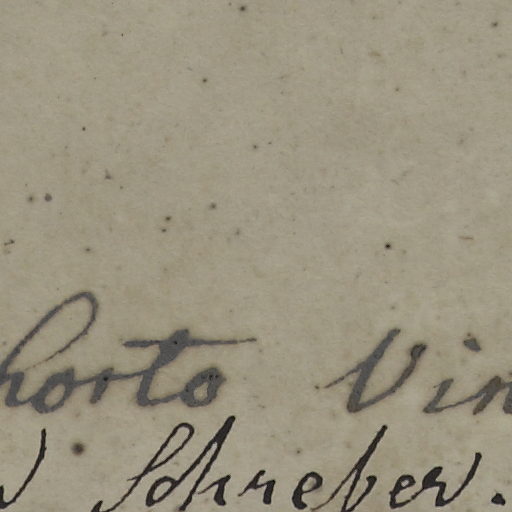 horto Vin
Schreber.